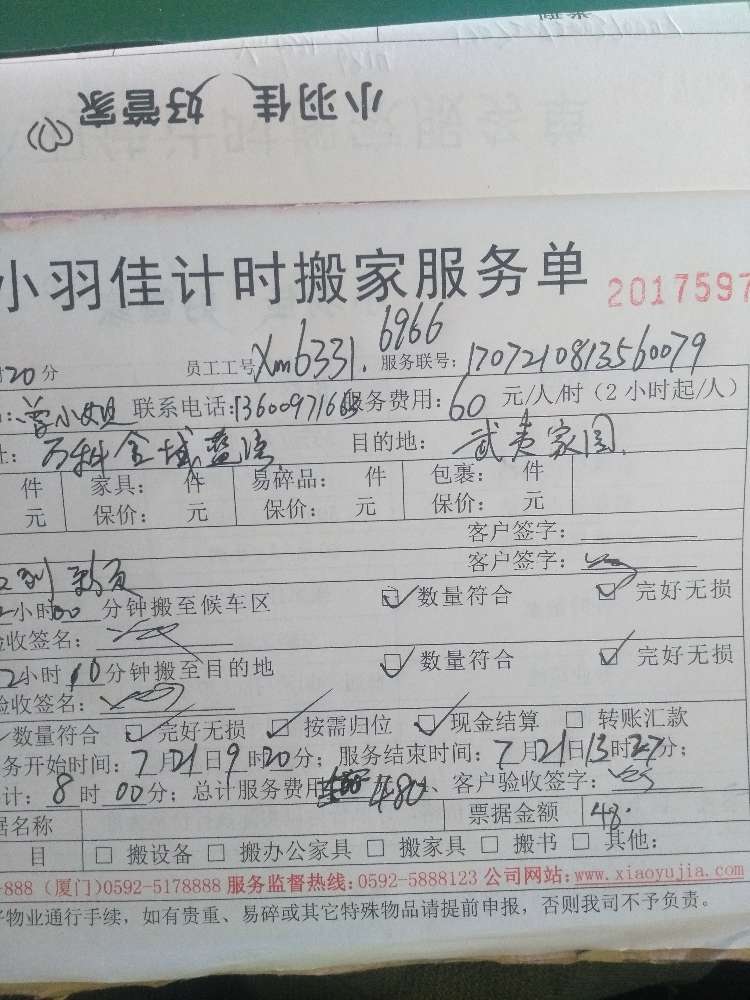 小羽佳 好管家
小羽佳计时搬家服务单 2017597
20分 员工工号 Xm6331.6966 服务联号: 1707210813560079
曾小姐 联系电话: 服务费用: 60 元/人/时 (2小时起/人)
万科金域蓝湾 目的地: 武夷家园
件 家具: 件 易碎品: 件 包裹: 件
元 保价: 元 保价: 元 保价: 元
客户签字:
客户签字:
2小时00分钟搬至候车区 数量符合 完好无损
验收签名:
2小时10分钟搬至目的地 数量符合 完好无损
验收签名:
数量符合 完好无损 按需归位 现金结算 转账汇款
务开始时间: 7月21日9时20分; 服务结束时间: 7月21日13时27分;
计: 8时00分; 总计服务费用 480、客户验收签字:
据名称 票据金额 48.
目 搬设备 搬办公家具 搬家具 搬书 其他:
-888 (厦门)0592-5178888 服务监督热线: 0592-5888123 公司网站: www.xiaoyujia.com
好物业通行手续, 如有贵重、易碎或其它特殊物品请提前申报, 否则我司不予负责。